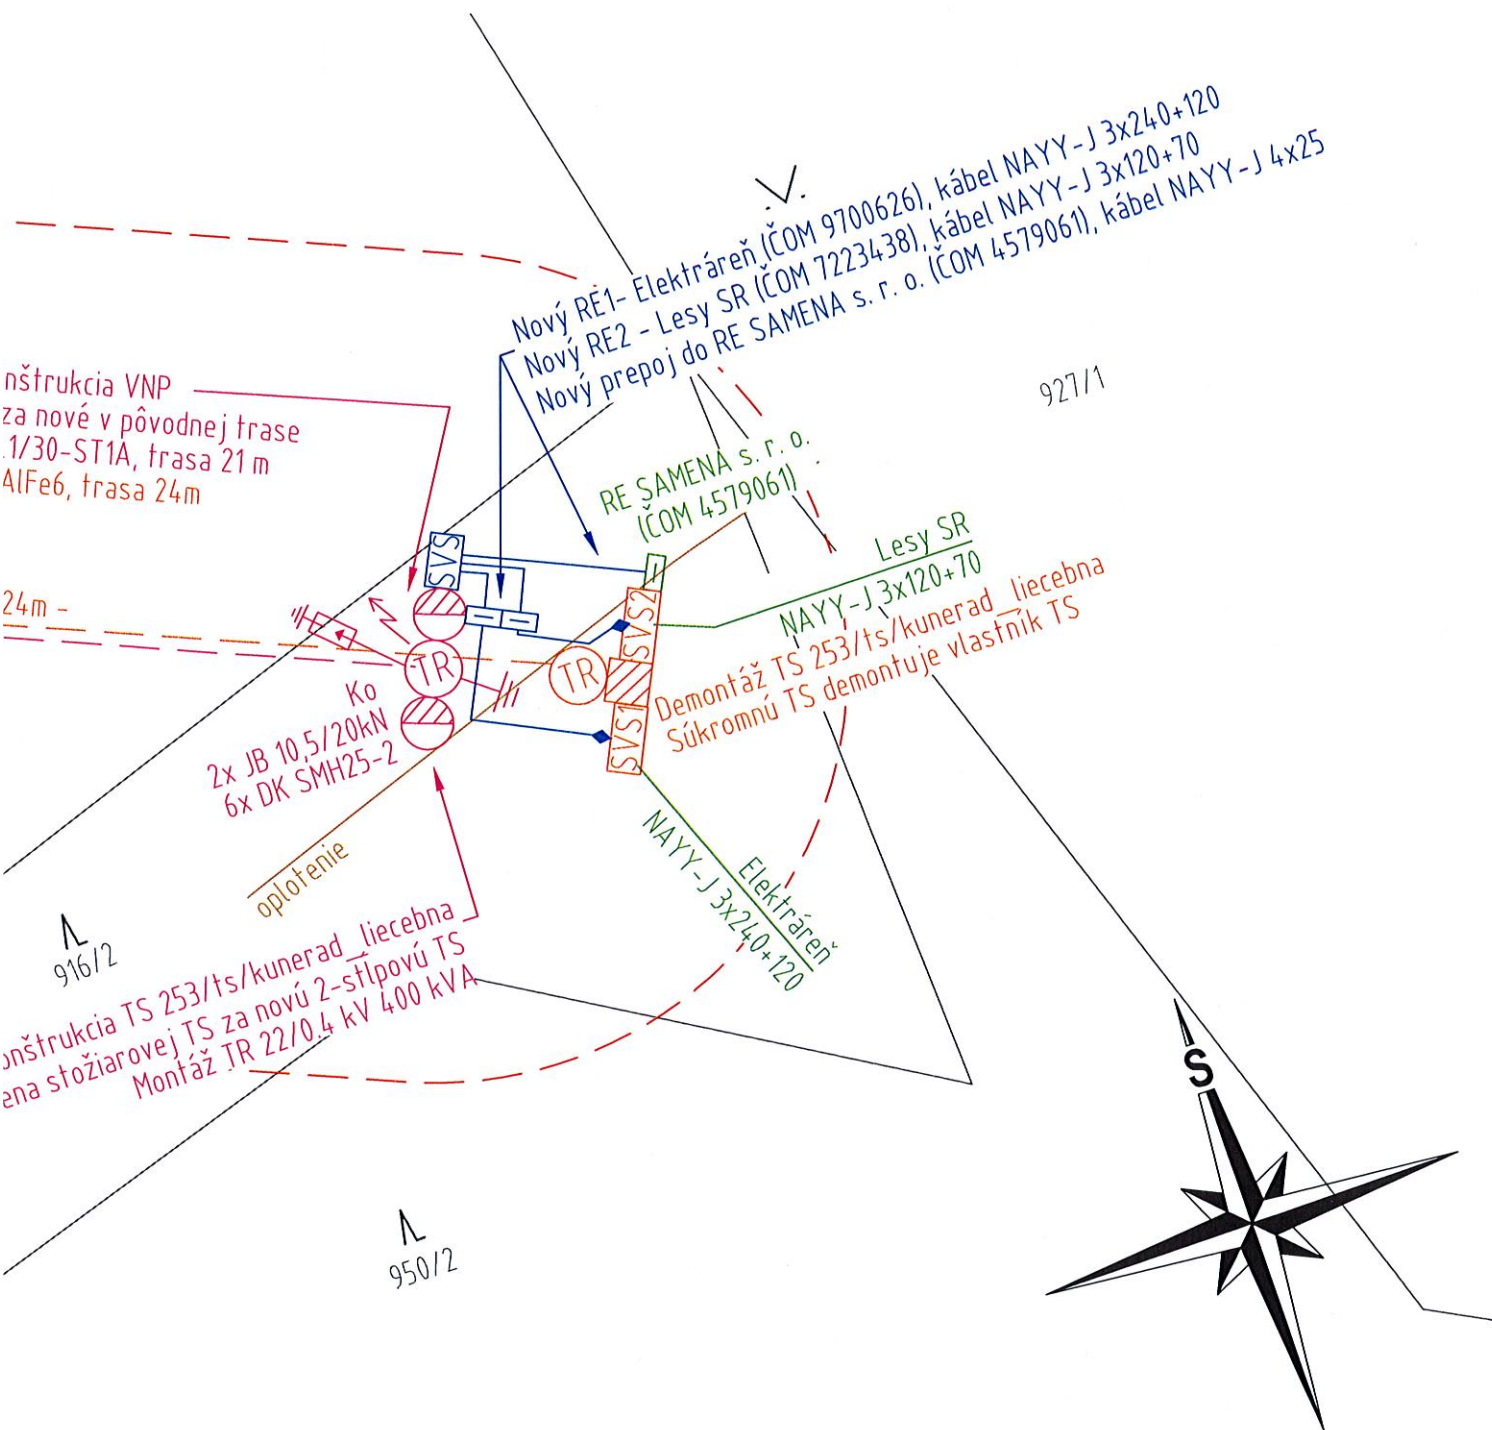 Nový RE1- Elektráreň (ČOM 9700626), kábel NAYY-J 3x240+120
Nový RE2 - Lesy SR (ČOM 7223438), kábel NAYY-J 3x120+70
Nový prepoj do RE SAMENA s. r. o. (ČOM 4579061), kábel NAYY-J 4x25
927/1
nštrukcia VNP
za nové v pôvodnej trase
1/30-ST1A, trasa 21 m
AlFe6, trasa 24m
RE SAMENA s. r. o.
(ČOM 4579061)
Lesy SR
NAYY-J 3x120+70
SVS
SVS2
24m -
TR
TR
SVS1
Demontáž TS 253/ts/kunerad_liecebna
Súkromnú TS demontuje vlastník TS
Ko
2x JB 10,5/20kN
6x DK SMH25-2
oplotenie
Elektráreň
NAYY-J 3x240+120
916/2
onštrukcia TS 253/ts/kunerad_liecebna
ena stožiarovej TS za novú 2-stĺpovú TS
Montáž TR 22/0.4 kV 400 kVA
S
950/2